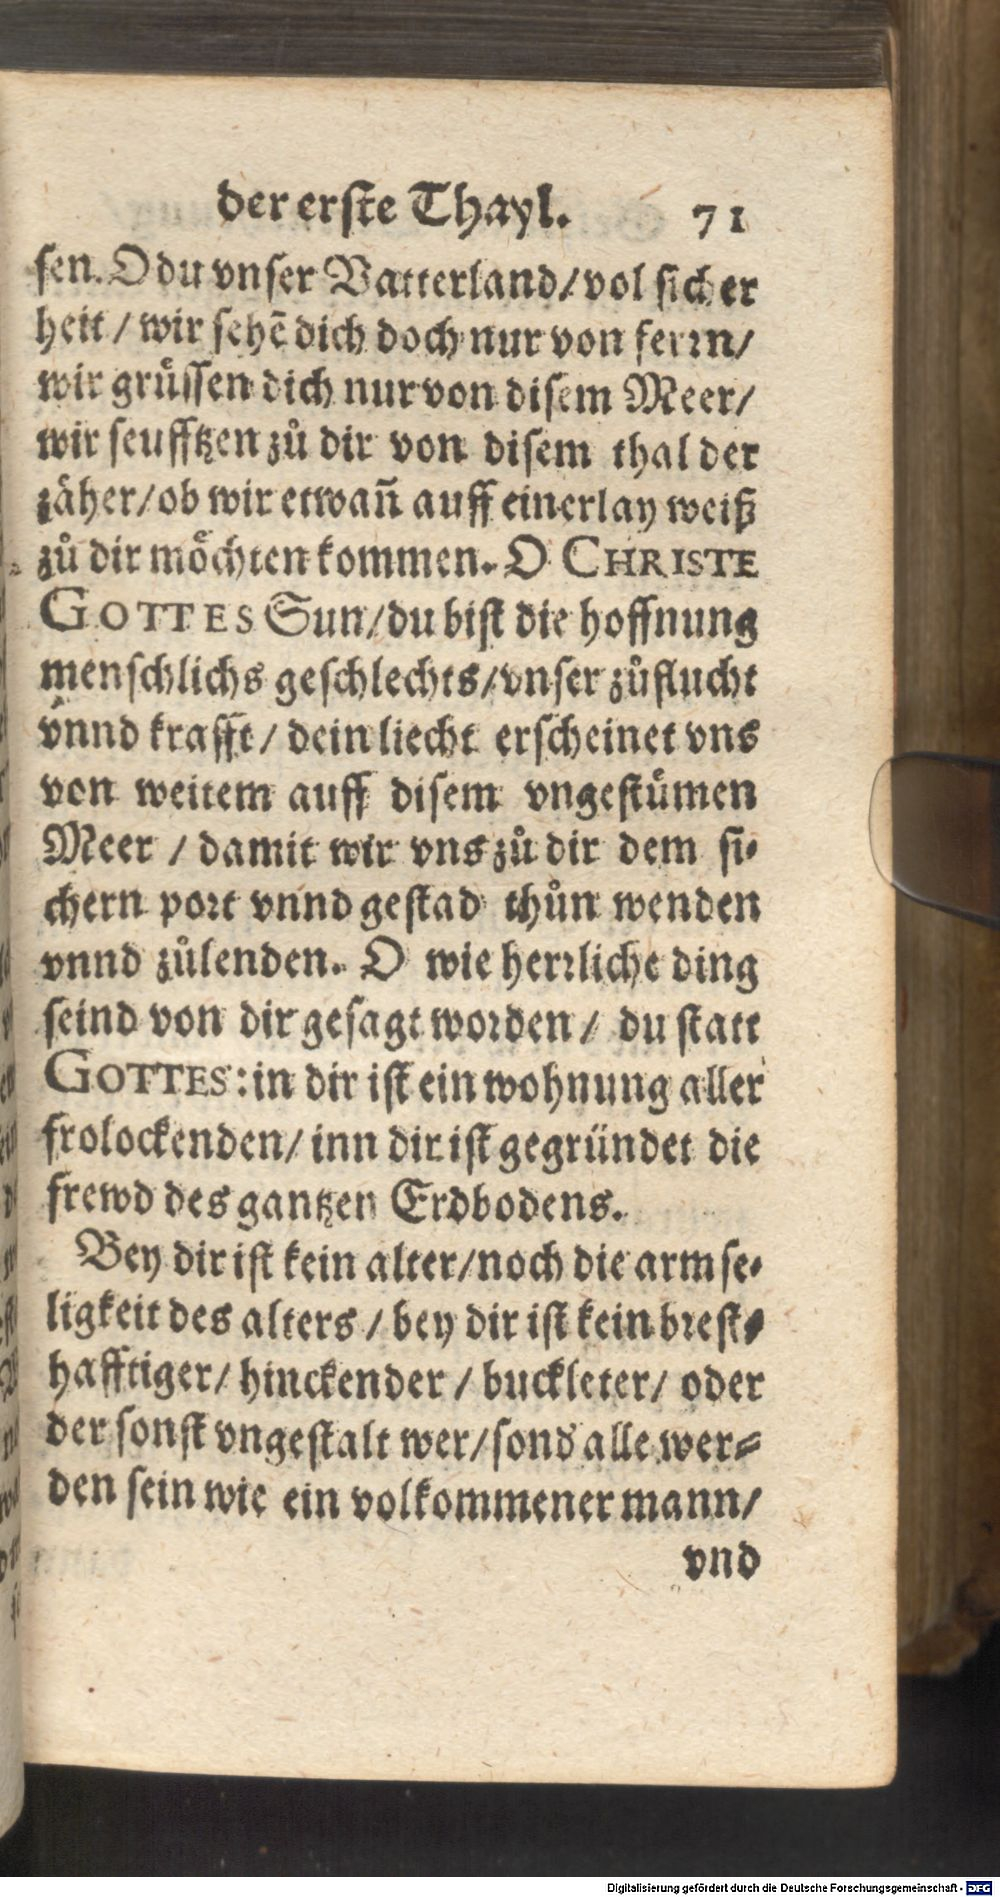 der erste Thayl. 71
sen. O du vnser Vatterland/ vol sicher
heit / wir sehē dich doch nur von ferrn/
wir grüssen dich nur von disem Meer/
wir seufftzen zů dir von disem thal der
zäher/ ob wir etwañ auff einerlay weiß
zů dir möchten kommen. O CHRISTE
GOTTES Sun/ du bist die hoffnung
menschlichs geschlechts/ vnser zůflucht
vnnd krafft/ dein liecht erscheinet vns
von weitem auff disem vngestümen
Meer / damit wir vns zů dir dem si-
chern port vnnd gestad thůn wenden
vnnd zůlenden. O wie herrliche ding
seind von dir gesagt worden/ du statt
GOTTES: in dir ist ein wohnung aller
frolockenden/ inn dir ist gegründet die
frewd des gantzen Erdbodens.
Bey dir ist kein alter/ noch die armse-
ligkeit des alters / bey dir ist kein brest-
hafftiger/ hinckender / buckleter/ oder
der sonst vngestalt wer/ sond' alle wer-
den sein wie ein volkommener mann/
vnd
Digitalisierung gefördert durch die Deutsche Forschungsgemeinschaft - DFG